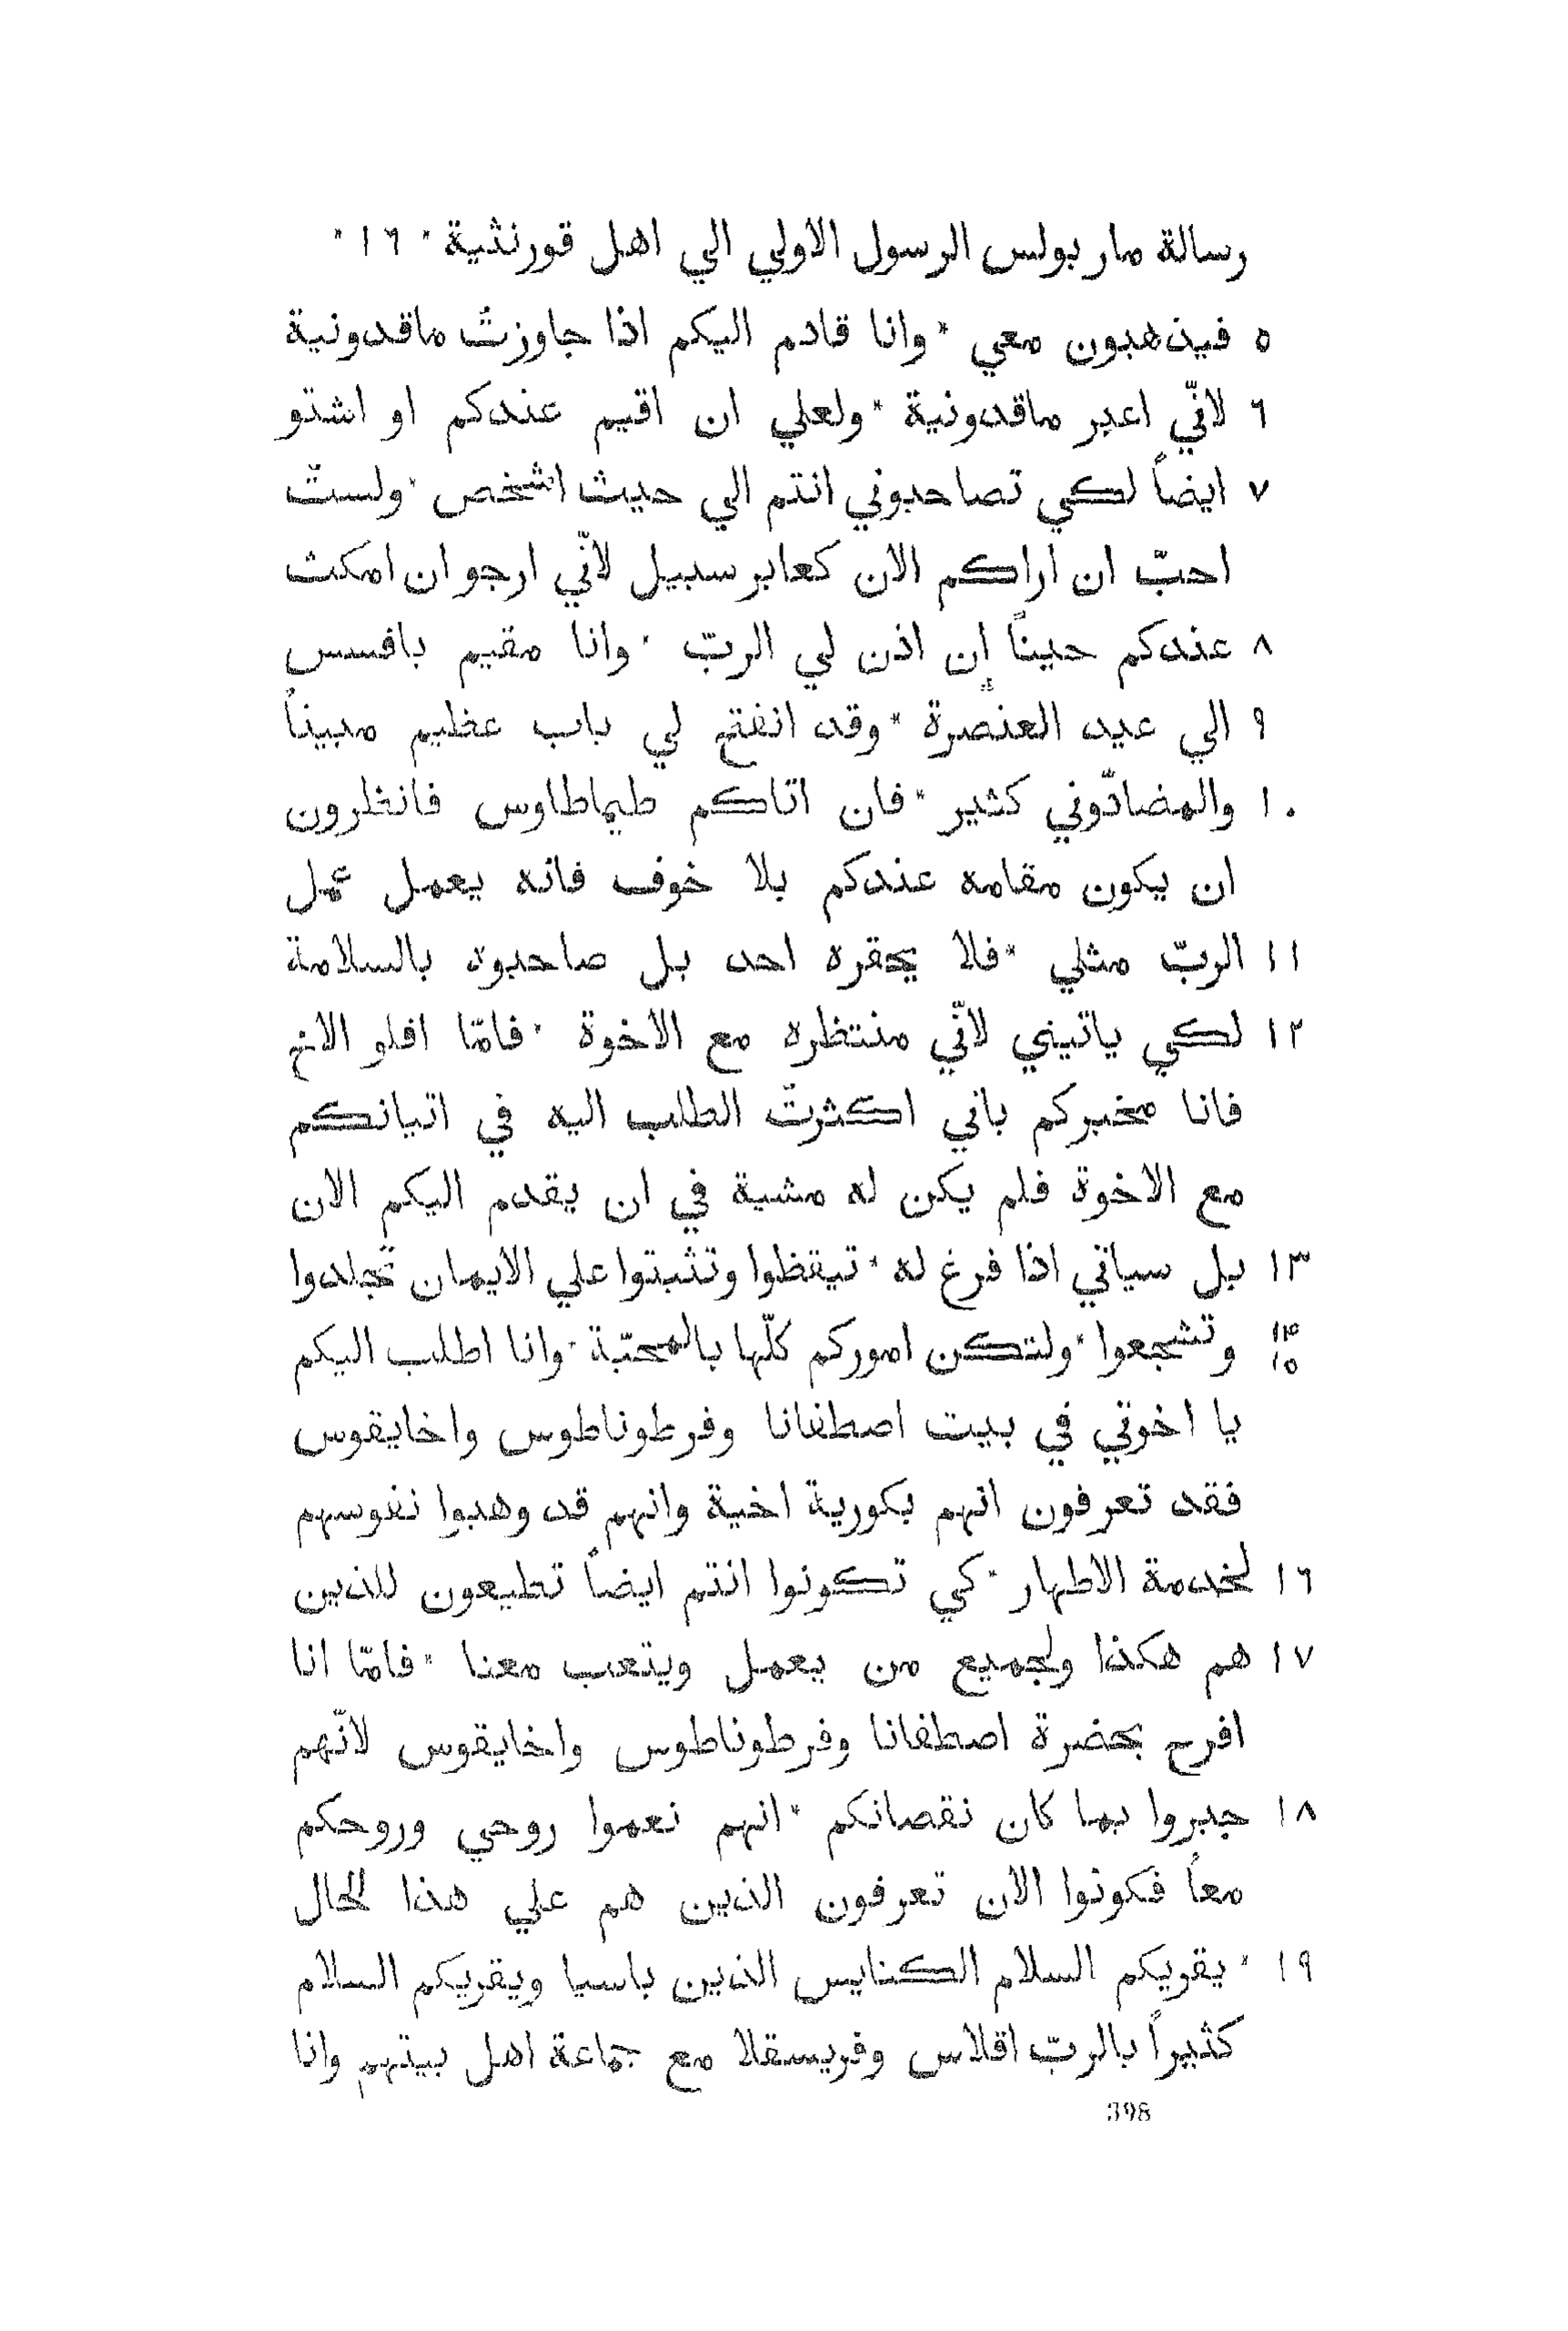 رسالة مار بولس الرسول الاولي الي اهل قورنثية * ١٦ *
٥ فيذهبون معي * وانا قادم اليكم اذا جاوزتُ ماقدونية
٦ لانّي اعبر ماقدونية * ولعلي ان اقيم عندكم او اشتو
٧ ايضاً لكي تصاحبوني انتم الي حيث اشخص * ولستُ
احبّ ان اراكم الان كعابر سبيل لانّي ارجو ان امكث
٨ عندكم حيناً إن اذن لي الربّ * وانا مقيم بافسس
٩ الي عيد العنصرة * وقد انفتح لي باب عظيم مبيناً
١٠ والمضادّوني كثير * فان اتاكم طيماطاوس فانظرون
ان يكون مقامه عندكم بلا خوف فانه يعمل عمل
١١ الربّ مثلي * فلا يحقره احد بل صاحبوه بالسلامة
١٢ لكي ياتيني لانّي منتظره مع الاخوة * فامّا افلو الاخ
فانا مخبركم باني اكثرتُ الطلب اليه في اتيانكم
مع الاخوة فلم يكن له مشية في ان يقدم اليكم الان
١٣ بل سياتي اذا فرغ له * تيقظوا وتثبتوا علي الايمان تجلدوا
١٤ ١٥ وتشجعوا * ولتكن اموركم كلّها بالمحبّة * وانا اطلب اليكم
يا اخوتي في بيت اصطفانا وفرطوناطوس واخايقوس
فقد تعرفون انهم بكورية اخية وانهم قد وهبوا نفوسهم
١٦ لخدمة الاطهار * كي تكونوا انتم ايضاً تطيعون للذين
١٧ هم هكذا ولجميع من يعمل ويتعب معنا * فامّا انا
افرح بحضرة اصطفانا وفرطوناطوس واخايقوس لانّهم
١٨ جبروا بما كان نقصانكم * انهم نعموا روحي وروحكم
معاً فكونوا الان تعرفون الذين هم علي هذا الحال
١٩ * يقريكم السلام الكنايس الذين باسيا ويقريكم السلام
كثيراً بالربّ اقلاس وفريسقلا مع جماعة اهل بيتهم وانا
398